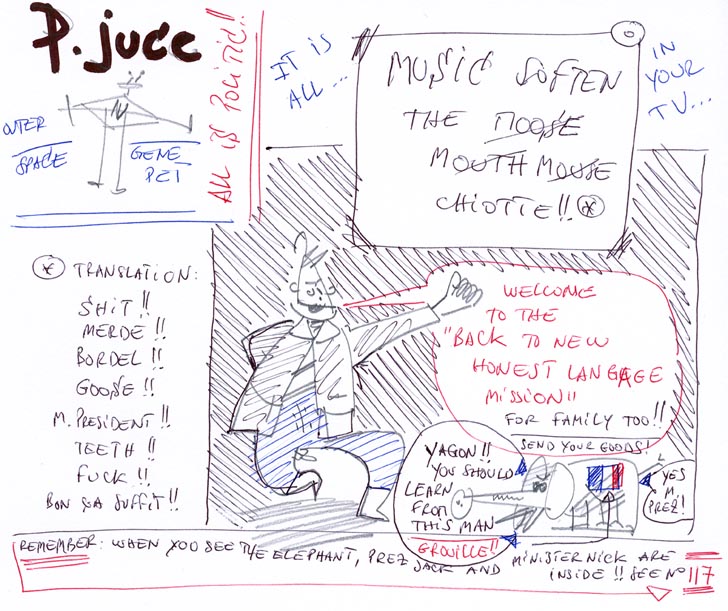 P. juce
OUTER
SPACE
GENE
PET
ALL is Politic!!
IT IS
ALL...
IN
YOUR
TV...
MUSIC SOFTEN
THE MOOSE
MOUTH MOUSE
CHIOTTE!! *
* TRANSLATION:
SHIT!!
MERDE!!
BORDEL!!
GOOSE!!
M. PRESIDENT!!
TEETH!!
FUCK!!
BON ÇA SUFFIT!!
WELCOME
TO THE
"BACK TO NEW
HONEST LANGAGEE
MISSION"
FOR FAMILY TOO!!
SEND YOUR GOODS!
YAGON!!
YOU SHOULD
LEARN
FROM
THIS MAN
GROUILLE!!
YES
M.
PREZ!
REMEMBER: WHEN YOU SEE THE ELEPHANT, PREZ JACK AND MINISTER NICK ARE
INSIDE!! SEE N° 117